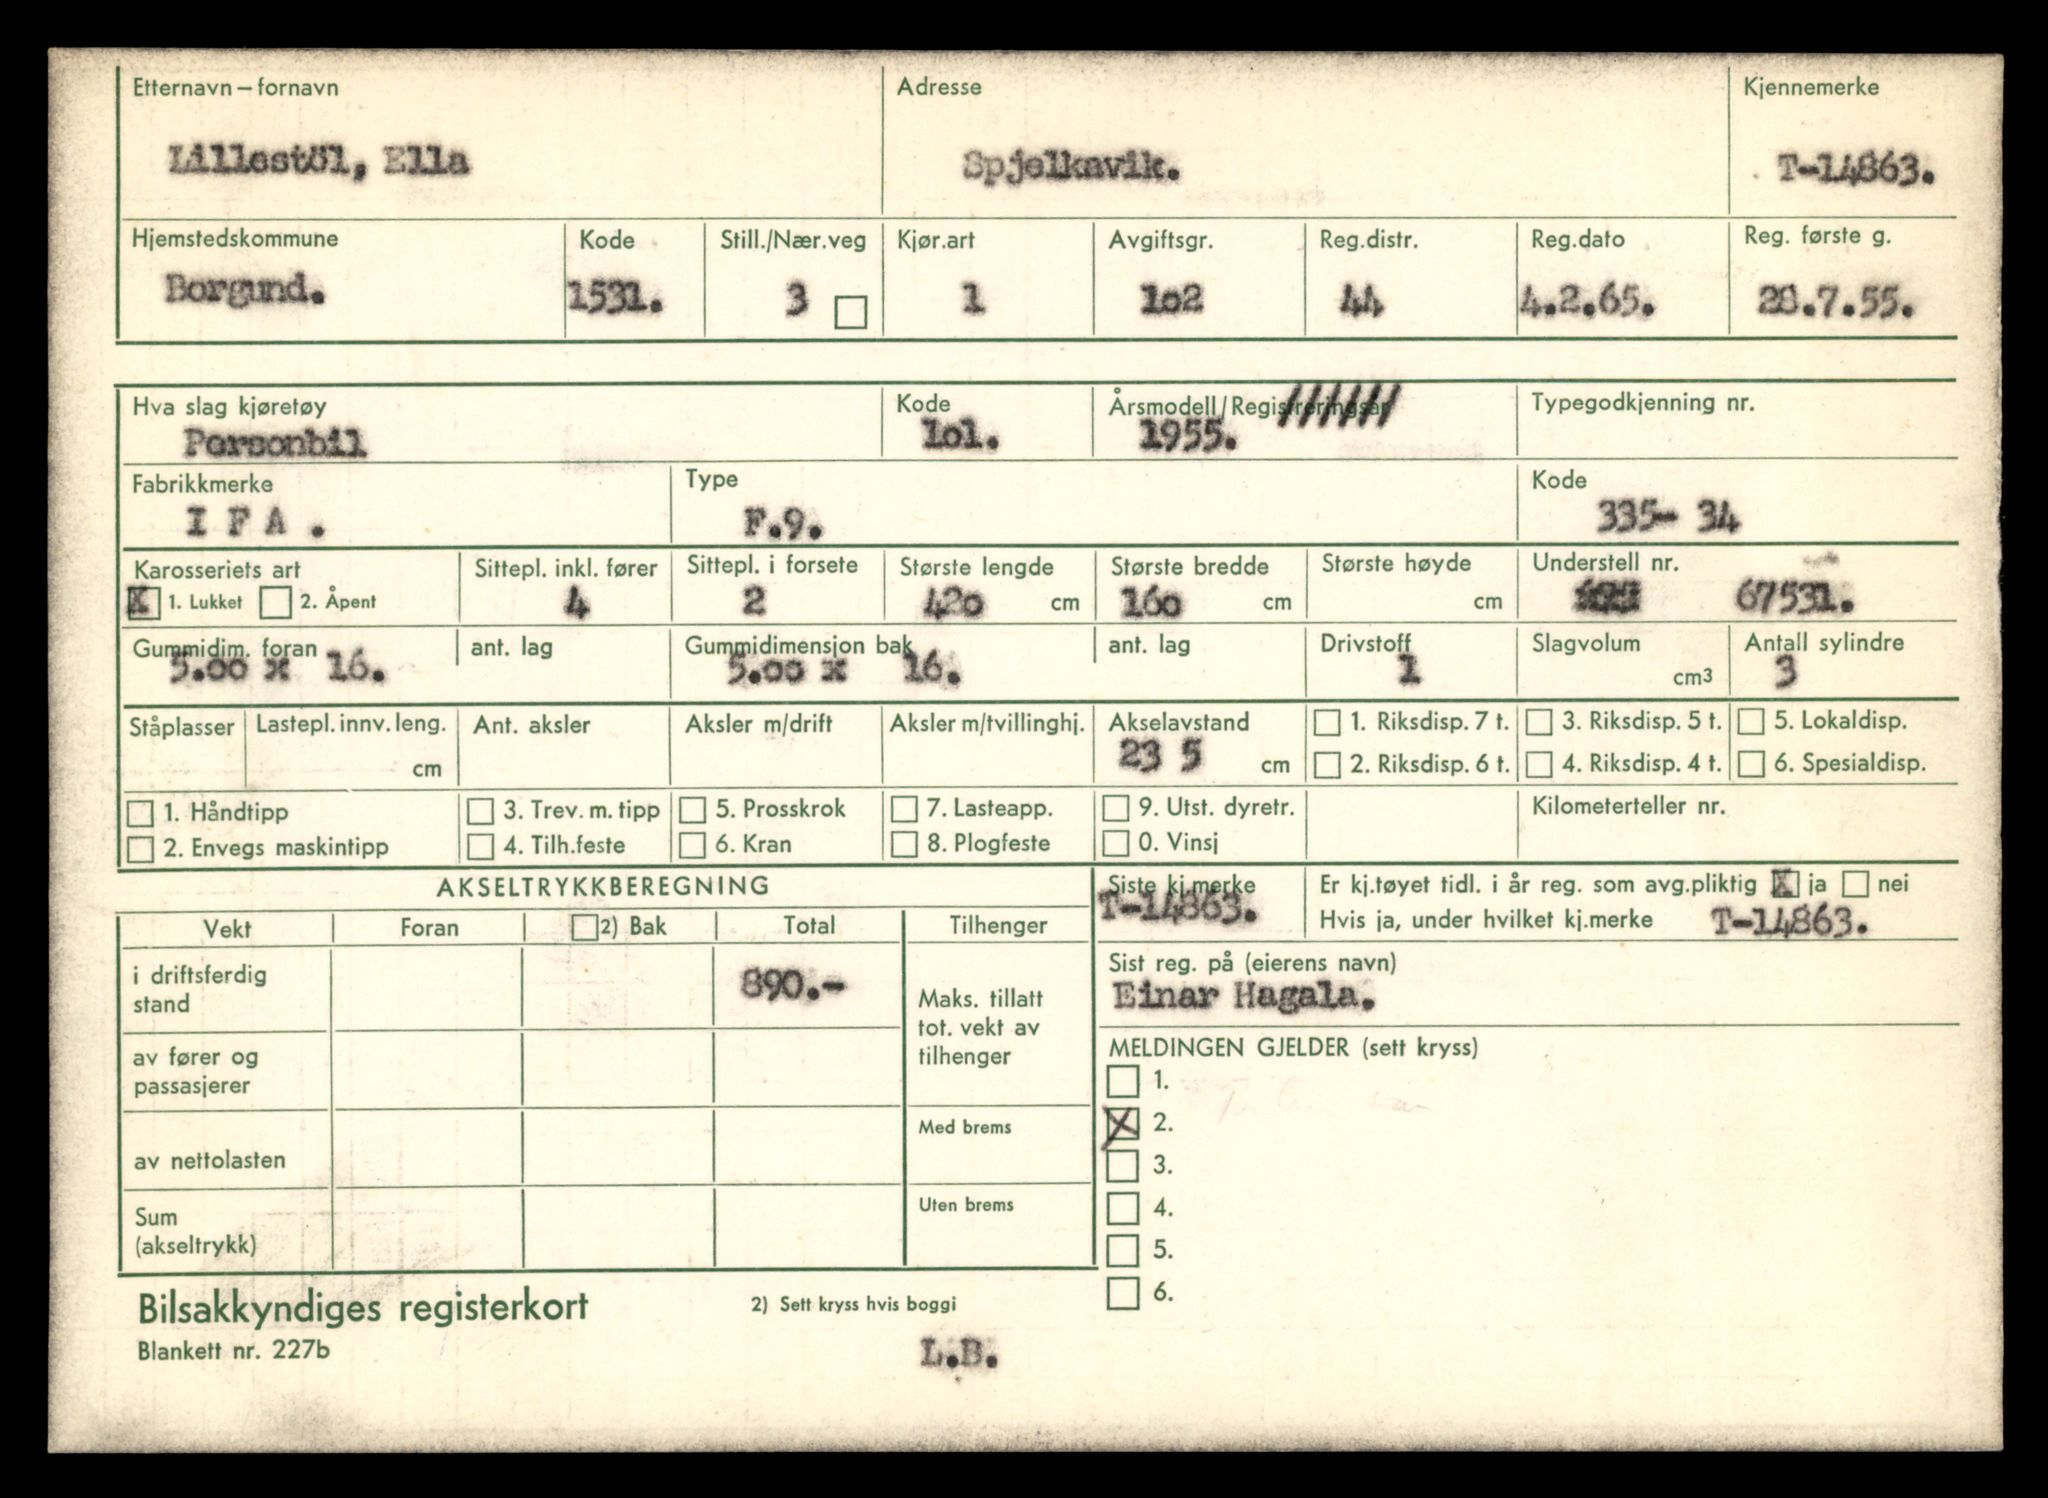 Etternavn – fornavn Adresse Kjennemerke
Lillestöl, Ella Spjelkavik. T-14863.
Hjemstedskommune Kode Still./Nær.veg Kjør.art Avgiftsgr. Reg.distr. Reg.dato Reg. første g.
Borgund. 1531. 3 1 1o2 44 4.2.65. 28.7.55.
Hva slag kjøretøy Kode Årsmodell/Registreringsår Typegodkjenning nr.
Personbil 1o1. 1955.
Fabrikkmerke Type Kode
I F A . F.9. 335- 34
Karosseriets art Sittepl. inkl. fører Sittepl. i forsete Største lengde Største bredde Største høyde Understell nr.
X 1. Lukket 2. Åpent 4 2 42o cm 16o cm cm 67531.
Gummidim. foran ant. lag Gummidimensjon bak ant. lag Drivstoff Slagvolum Antall sylindre
5.oo x 16. 5.oo x 16. 1 cm3 3
Ståplasser Lastepl. innv. leng. Ant. aksler Aksler m/drift Aksler m/tvillinghj. Akselavstand 1. Riksdisp. 7 t. 3. Riksdisp. 5 t. 5. Lokaldisp.
cm 23 5 cm 2. Riksdisp. 6 t. 4. Riksdisp. 4 t. 6. Spesialdisp.
1. Håndtipp 3. Trev. m. tipp 5. Prosskrok 7. Lasteapp. 9. Utst. dyretr. Kilometerteller nr.
2. Envegs maskintipp 4. Tilh.feste 6. Kran 8. Plogfeste 0. Vinsj
AKSELTRYKKBEREGNING Siste kj.merke Er kj.tøyet tidl. i år reg. som avg.pliktig X ja nei
T-14863. Hvis ja, under hvilket kj.merke T-14863.
Vekt Foran 2) Bak Total Tilhenger
Sist reg. på (eierens navn)
i driftsferdig
stand 890.- Einar Hagala.
Maks. tillatt
tot. vekt av
tilhenger
MELDINGEN GJELDER (sett kryss)
av fører og
passasjerer
1.
Med brems X 2.
av nettolasten 3.
Uten brems 4.
Sum
(akseltrykk) 5.
6.
Bilsakkyndiges registerkort 2) Sett kryss hvis boggi
Blankett nr. 227b L.B.